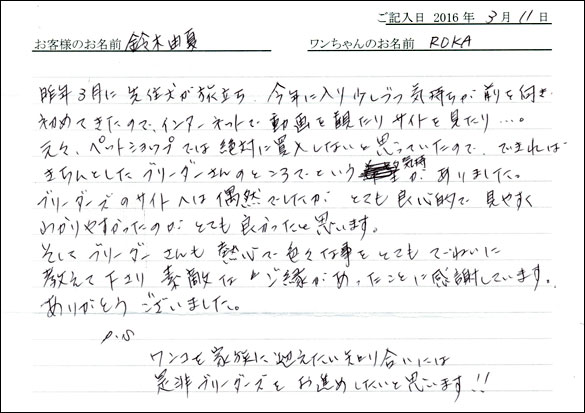 ご記入日 2016 年 3 月 11 日
お客様のお名前 鈴木由夏 ワンちゃんのお名前 ROKA
昨年3月に先住犬が旅立ち、今年に入り少しづつ気持ちが前を向き
初めてきたので、インターネットで動画を観たりサイトを見たり…。
元々、ペットショップでは絶対に買入しないと思っていたので、できれば
きちんとしたブリーダーさんのところでという気持が ありました。
ブリーダーズのサイトへは偶然でしたが とても良心的で 見やすく
わかりやすかったのが とても良かったと思います。
そして ブリーダーさんも 熱心で色々な事を とても ていねいに
教えて下さり 素敵な ご縁があったことに感謝しています。
ありがとう ございました。
P.S
ワンコを 家族に迎えたい知り合いには
是非ブリーダーズを お進めしたいと思います!!